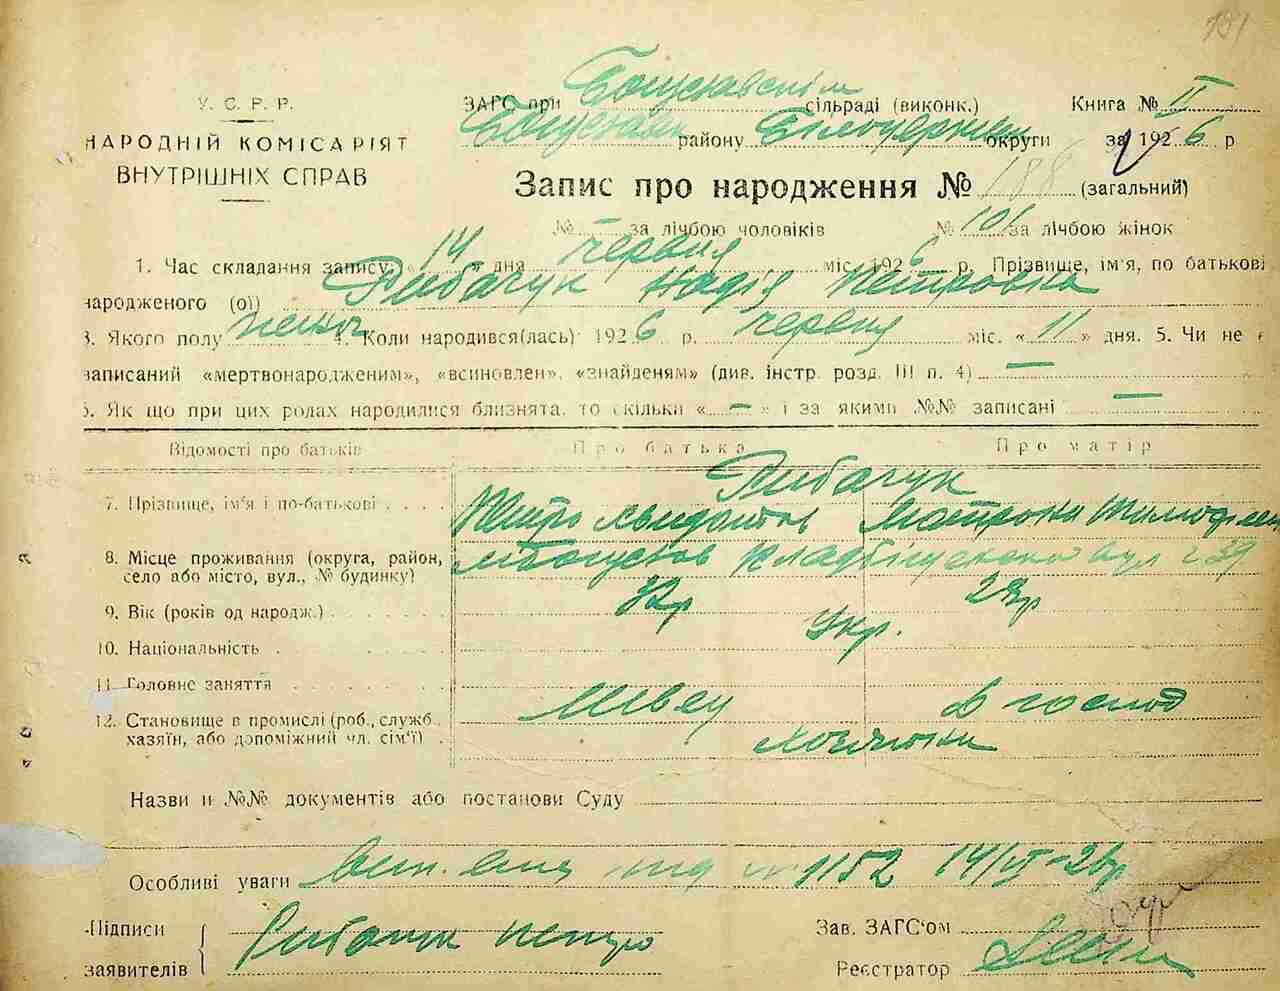 151
У. С. Р. Р.
НАРОДНІЙ КОМІСАРІЯТ
ВНУТРІШНІХ СПРАВ
ЗАГС при Богуславськім сільраді (виконк.) Книга № II
Богуслав району Білоцерків округи за 1926 р
Запис про народження № 188 (загальний)
№ — за лічбою чоловіків № 101 за лічбою жінок
1. Час складання запису: «14» дня червня міс. 1926 р. Прізвище, ім'я, по батькові
народженого (ої) Рибачук Надія Петровна
3. Якого полу жіноч 4. Коли народився(лась) 1926 р. червня міс. «11» дня. 5. Чи не є
записаний «мертвонародженим», «всиновлен», «знайденям» (див. інстр. розд. III п. 4) —
6. Як що при цих родах народилися близнята, то скільки «—» і за якими №№ записані —
Відомості про батьків Про батька Про матір
Рибачук
7. Прізвище, ім'я і по-батькові Петро Мотрона
8. Місце проживання (округа, район, село або місто, вул., № будинку) м Богуслав вул 39
9. Вік (років од народж.) 32р
10. Національність Укр.
11. Головне заняття Швец в господ
12. Становище в промислі (роб., служб., хазяїн, або допоміжний чл. сім'ї)
Назви и №№ документів або постанови Суду
Особливі уваги 1152 14/VI-26р
Підписи заявителів Рибачук Петро
Зав. ЗАГС'ом
Реєстратор